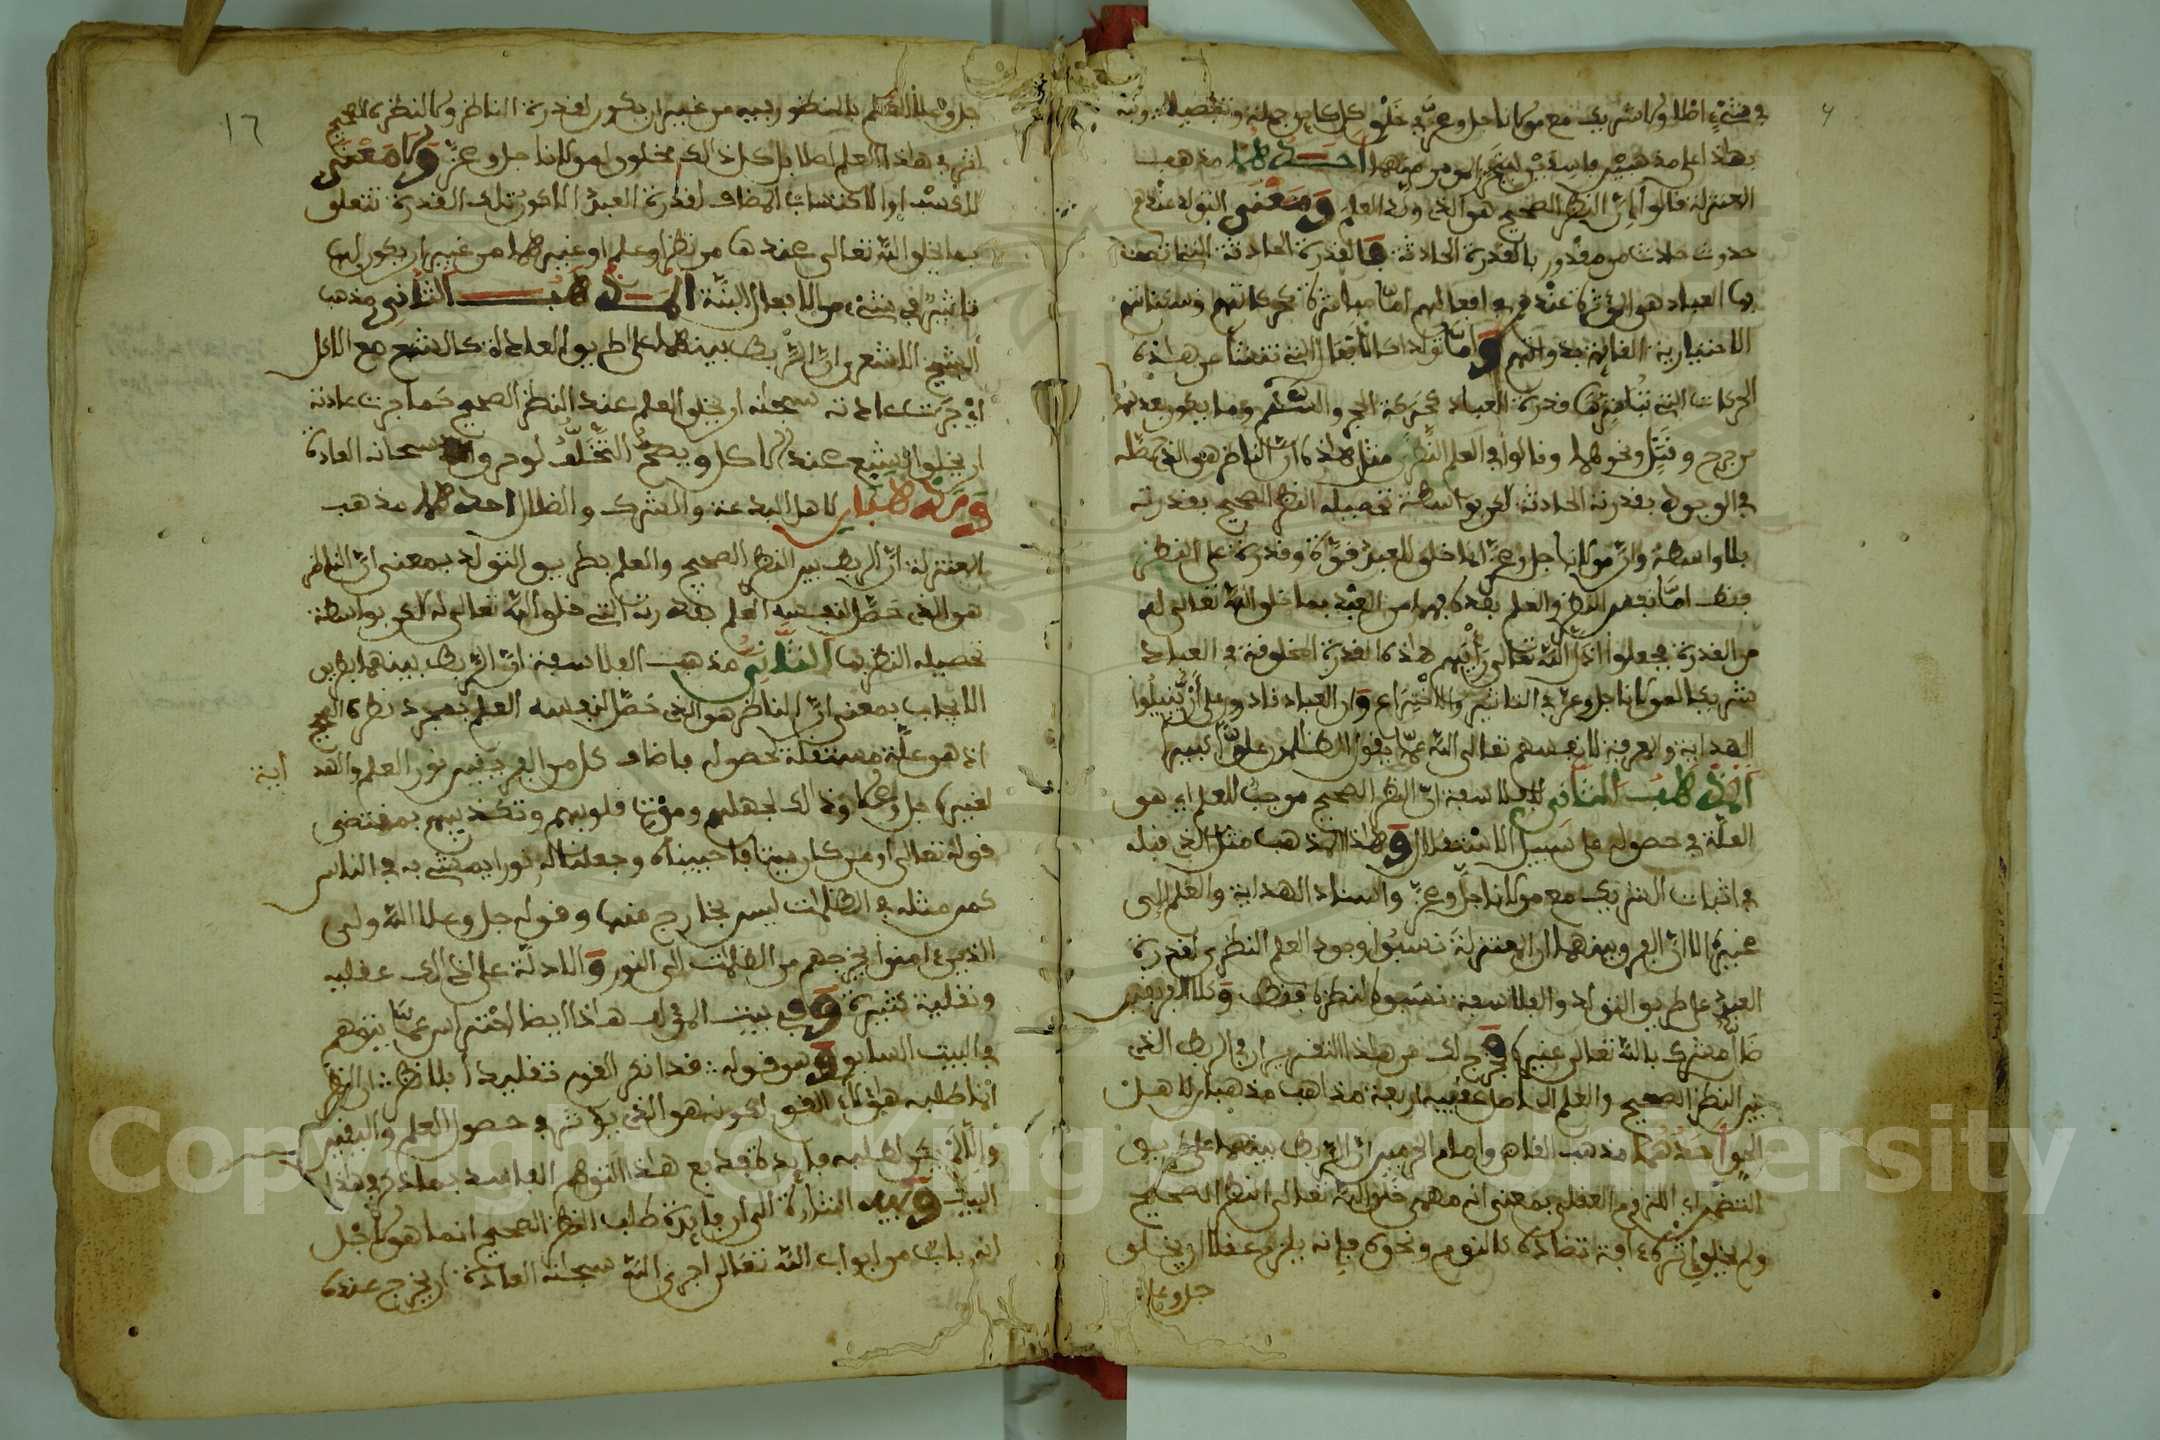 في شيء اطلا ولا شريك مع مولانا جل وعز في خلق كل كاين جملة وتفصيلا ونبه
بهذا على مذهبين فاسدين لغير المومن منهما احدهما مذهب
المعتزلة قالوا ان النظر الصحيح هو الذي ولد العلم ومعنى التولد عندهم
حدوث حادث من مقدور بالقدرة الحادثة فالقدرة الحادثة التي اتصف
بها العباد هو المؤثرة عندهم في افعالهم اما مباشرة كحركاتهم وسكناتهم
الاختيارية القايمة بذواتهم واما تولدا كالافعال التي تنشأ عن هذه
الحركات التي تباشرها قدرة العباد كحركة الحجر والسهم وما يكون بعدهما
من جرح وقتل ونحوهما وقالوا في العلم النظري مثل هذا ان الناظر هو الذي حصله
في الوجود بقدرته الحادثة لكن بواسطة تحصيله النظر الصحيح بقدرته
بلا واسطة وان مولانا جل وعز انما خلق للعبد قوة وقدرة على النظر
فقط اما نفس النظر والعلم بعده فهما من العبد بما خلق الله تعالى له
من القدرة فجعلوا اذل الله تعالى رأيهم هذه القدرة المخلوقة في العباد
شريكا لمولانا جل وعز في التاثير والاختراع وان العباد قادرون على أن ينيلوا
الهداية والمعرفة لانفسهم تعالى الله عما يقول الظالمون علوا كبيرا
المذهب الثاني للفلاسفة ان النظر الصحيح موجب للعلم اي هو
العلة في حصوله على سبيل الاستقلال وهذا المذهب مثل الذي قبله
في اثبات الشريك مع مولانا جل وعز واسناد الهداية والعلم الى
غيره الا ان الفرق بينهما ان المعتزلة نسبوا وجود العلم النظري لقدرة
العبد على طريق التولد والفلاسفة نسبوه لنظره فقط وكلا الفريقين
ضال مشرك بالله تعالى غيره فخرج لك من هذا التقرير ان في الربط الذي
بين النظر الصحيح والعلم الحاصل عقبه اربعة مذاهب مذهبان لاهل
الحق احدهما مذهب القاضي وامام الحرمين ان الربط بينهما على طريق
التضمن اي اللزوم العقلي بمعنى انه مهما خلق الله تعالى النظر الصحيح
ولم يخلق اثره ءافة تضاده كالنوم ونحوه فانه يلزم عقلا ان يخلق
جل وعلا
١٦
جل وعلا العلم بالمنظور فيه من غير ان يكون لقدرة الناظر ولا لنظره الصحيح
اثر في هذا العلم اصلا بل كل ذلك مخلوق لمولانا جل وعز ولا معنى
للكسب او الاكتساب المضاف لقدرة العبد الا كون تلك القدرة تتعلق
بما يخلق الله تعالى عندها من نظر او علم او غيرهما من غير ان يكون لها
تاثير في شيء من الافعال البتة المذهب الثاني مذهب
الشيخ الاشعري ان الربط بينهما على طريق العادة كالشبع مع الاكل
اي جرت عادته سبحانه ان يخلق العلم عند النظر الصحيح كما جرت عادته
ان يخلق الشبع عند الاكل ويصح التخلف لو خرق سبحانه العادة
ومذهبان لاهل البدعة والشرك والظلال احدهما مذهب
المعتزلة ان الربط بين النظر الصحيح والعلم بطريق التولد بمعنى ان الناظر
هو الذي حصل لنفسه العلم بقدرته التي خلق الله تعالى له لكن بواسطة
تحصيله النظر بها الثاني مذهب الفلاسفة ان الربط بينهما بطريق
الايجاب بمعنى ان الناظر هو الذي حصل لنفسه العلم بمجرد نظره الصحيح
اذ هو علة مستقلة لحصوله فاضاف كل من الفريقين نور العلم والهد اية
لغيره جل وعلا وذلك لجهلهم وموت قلوبهم وتكذيبهم بمقتضى
قوله تعالى او من كان ميتا فاحييناه وجعلنا له نورا يمشي به في الناس
كمن مثله في الظلمات ليس بخارج منها وقوله جل وعلا الله ولي
الذين ءامنوا يخرجهم من الظلمات الى النور والادلة على ذلك عقلية
ونقلية كثيرة وفي بيت المؤلف هذا ايضا احتراس عما يتوهم
في البيت السابق وهو قوله قد انكر القوم تقليدا بلا نظر ان النظر
انما طلبه هؤلاء القوم لكونه هو الذي يؤثر في حصول العلم واليقين
والا لم يكن لطلبه فايدة فدفع هذا التوهم الفاسد بما ذكر في هذا
البيت وفيه اشارة الى ان فايدة طلب النظر الصحيح انما هو لاجل
انه باب من ابواب الله تعالى اجرى الله سبحانه العادة ان يخرج عنده